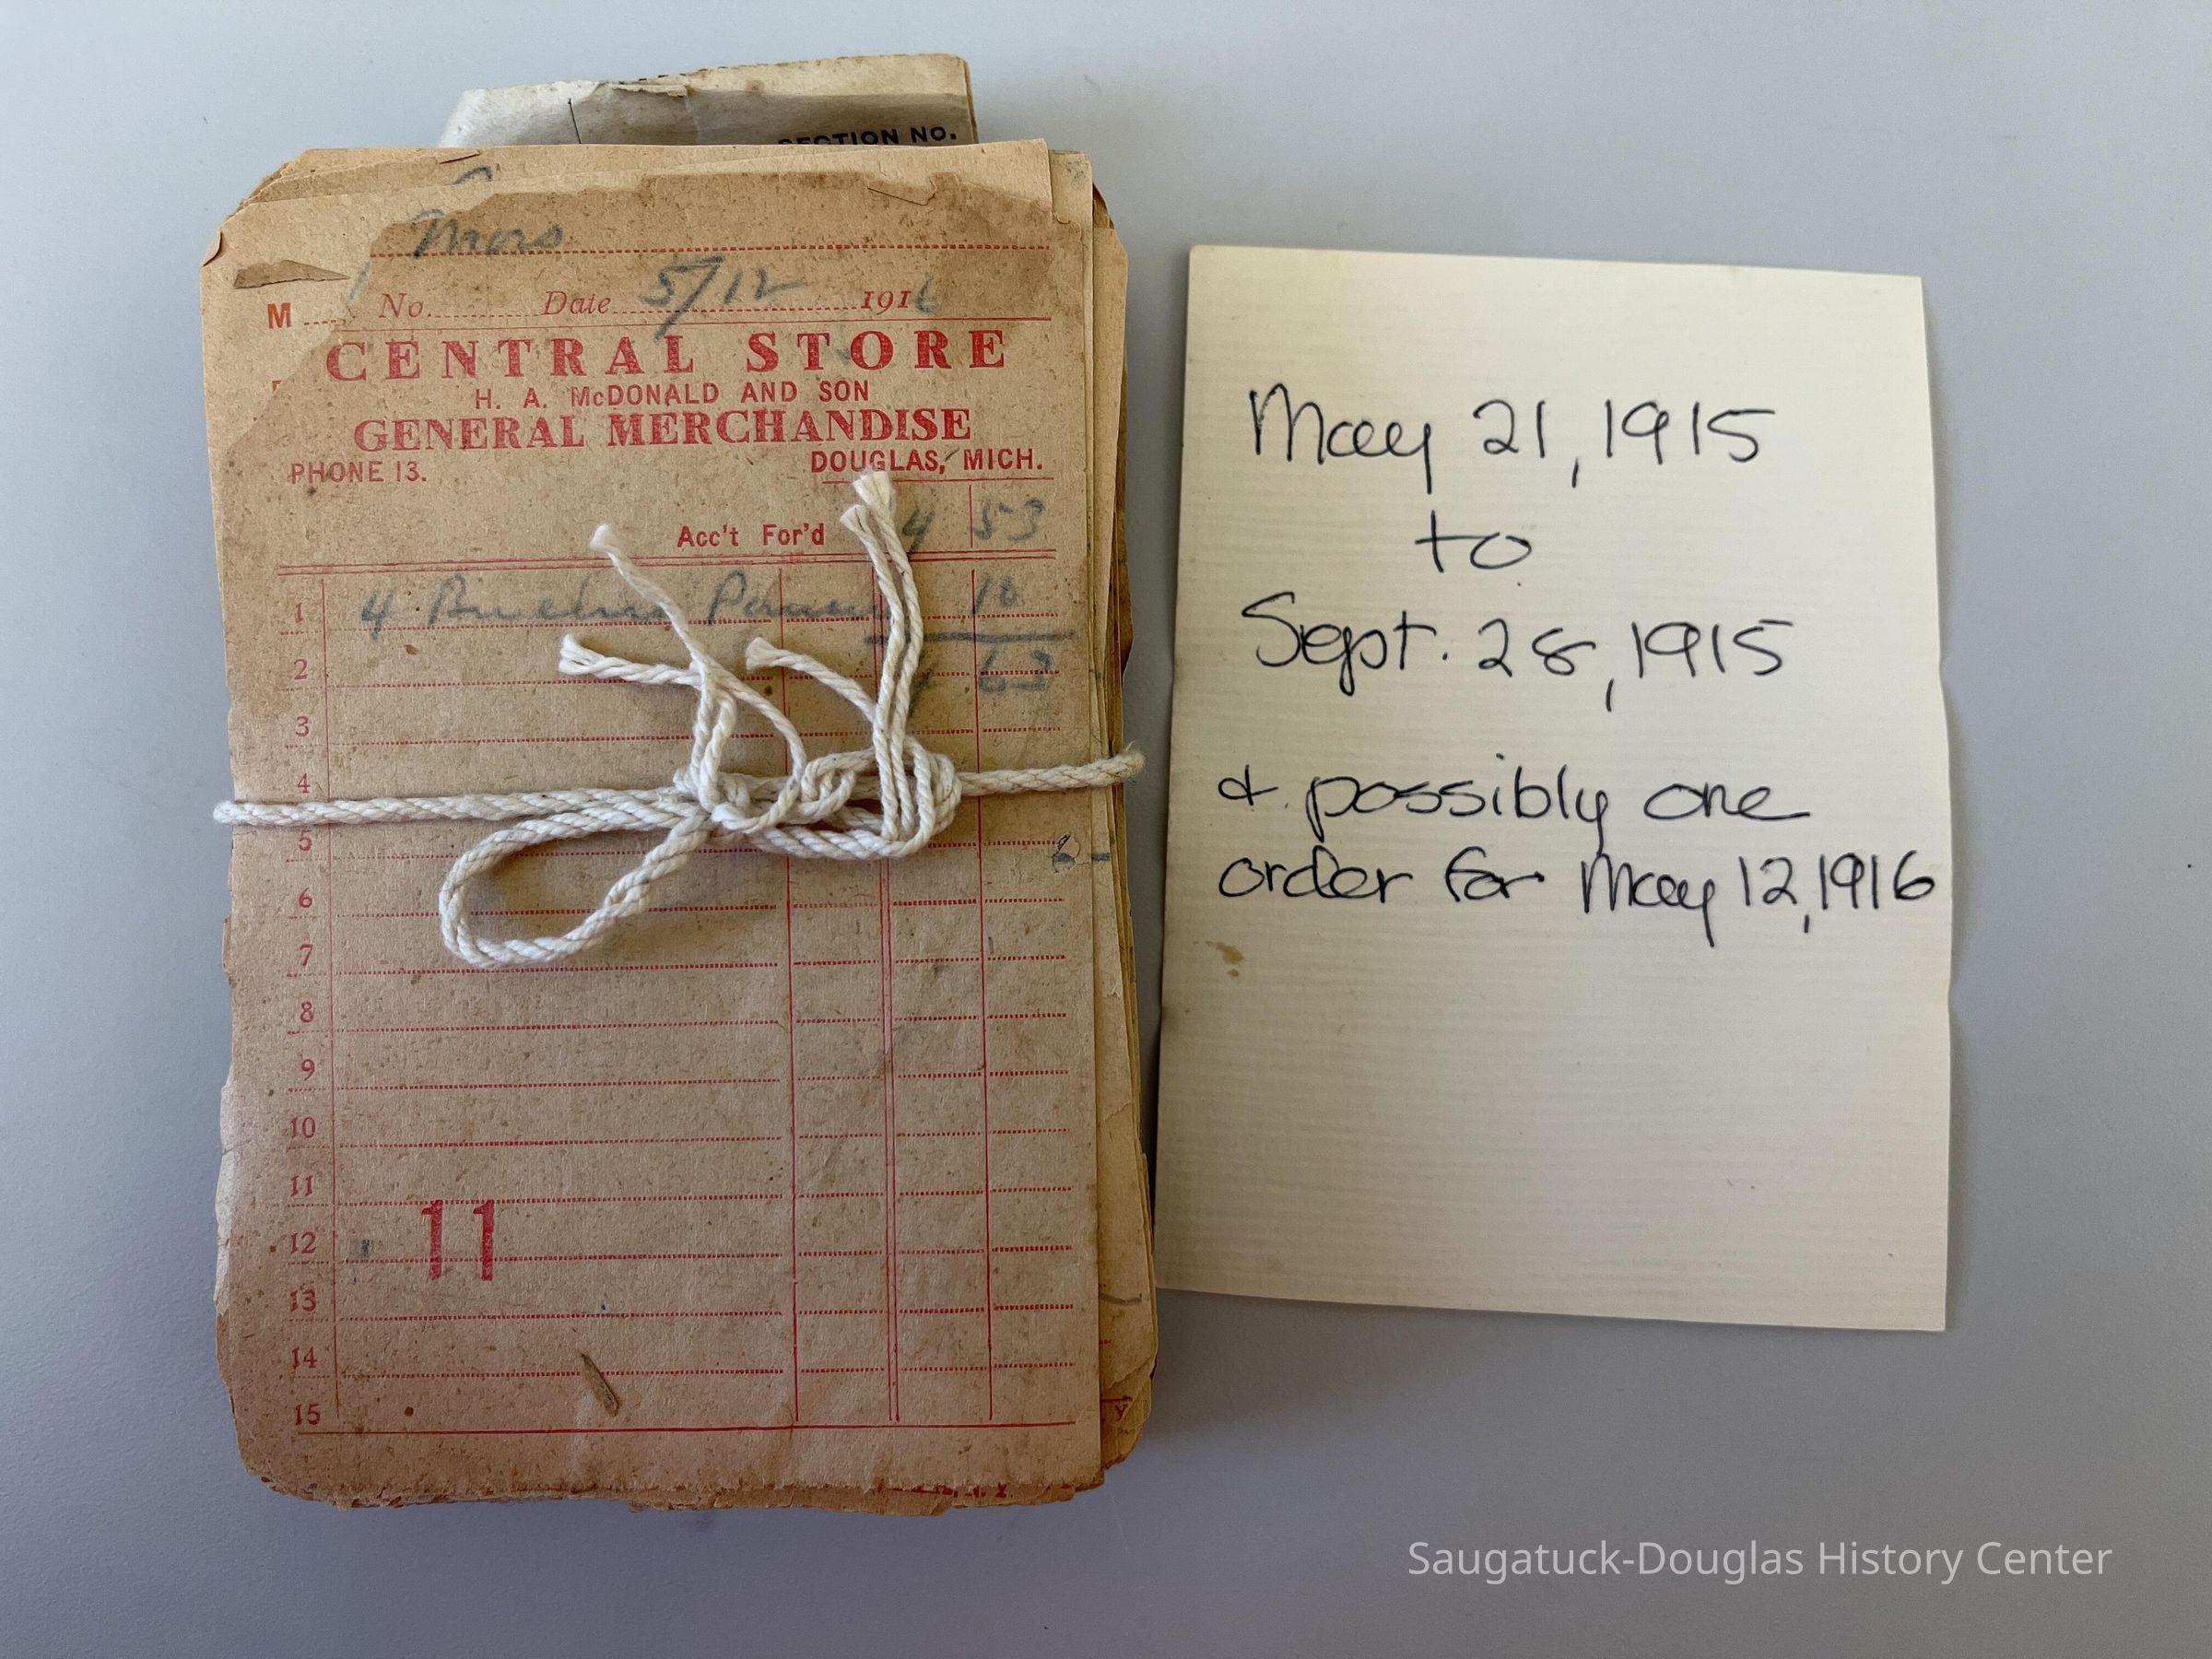 SECTION NO.
M No. Date 5/12 1916
CENTRAL STORE
H. A. McDONALD AND SON
GENERAL MERCHANDISE
PHONE 13. DOUGLAS, MICH.
Acc't For'd 4 53
1 4 10
2 63
3
4
5
6
7
8
9
10
11
12
13
14
15
11
May 21, 1915
to
Sept. 28, 1915
& possibly one
order for May 12, 1916
Saugatuck-Douglas History Center